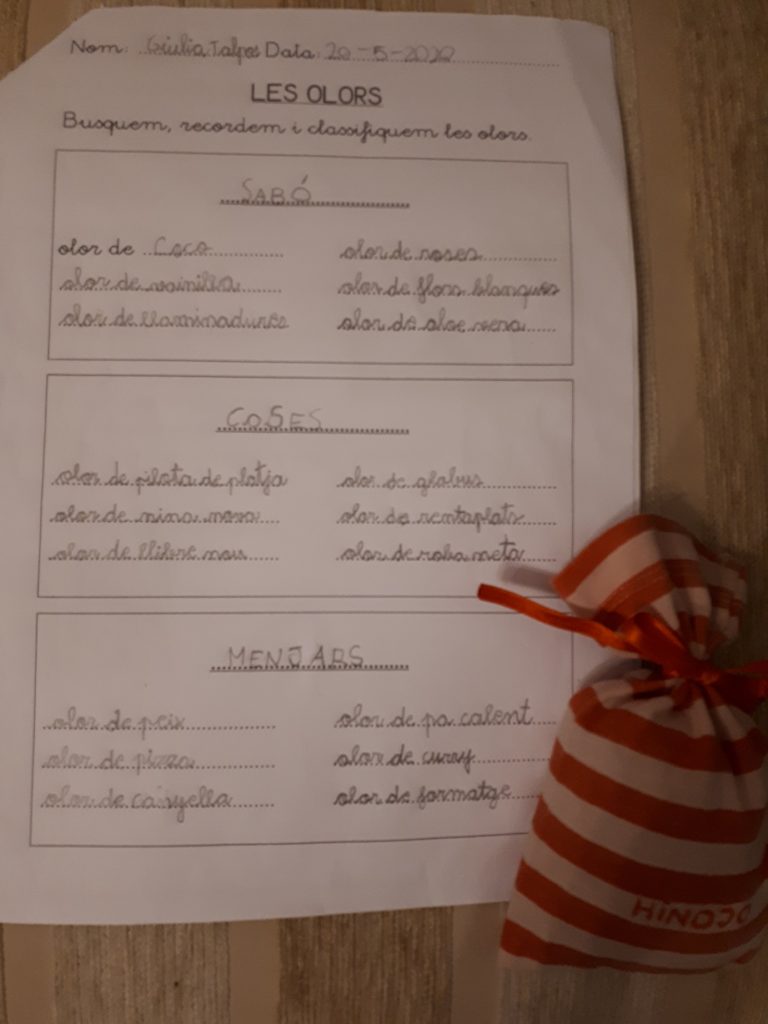 Nom: Giulia Talpos Data: 20-5-2020
LES OLORS
Busquem, recordem i classifiquem les olors.
SABÓ
olor de Coco olor de roses
olor de vainilla olor de flors blanques
olor de llaminadures olor de aloe vera
COSES
olor de pilota de platja olor de globus
olor de nina nova olor de rentaplats
olor de llibre nou olor de roba neta
MENJARS
olor de peix olor de pa calent
olor de pizza olor de curry
olor de canyella olor de formatge
OCONIH